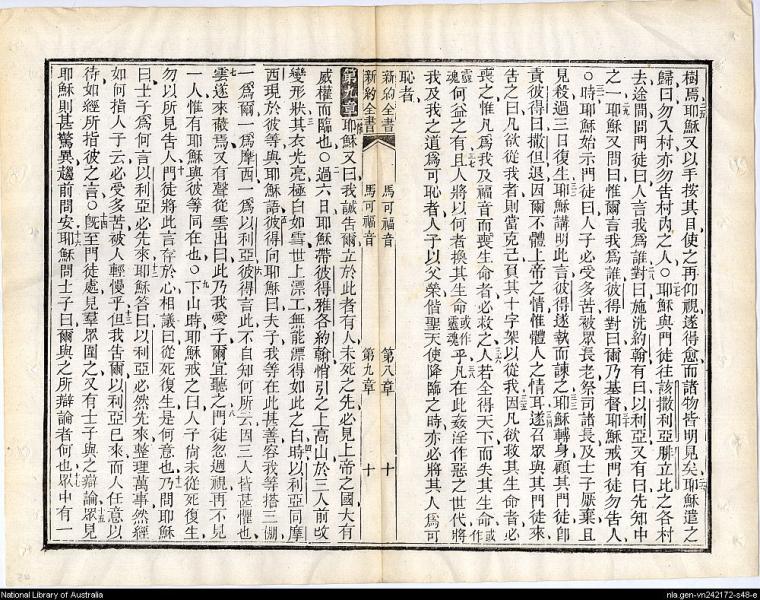 樹焉耶穌又以手按其目使之再仰視遂得愈而諸物皆明見矣耶穌遣之
歸曰勿入村亦勿告村內之人○耶穌與門徒往該撒利亞腓立比之各村
去途間問門徒曰人言我爲誰對曰施洗約翰有曰以利亞又有曰先知中
之一耶穌又問曰惟爾言我爲誰彼得對曰爾乃基督耶穌戒門徒勿告人
○時耶穌始示門徒曰人子必受多苦被眾長老祭司諸長及士子厭棄且
見殺過三日復生耶穌講明此言彼得遂執而諫之耶穌轉身顧其門徒即
責彼得曰撒但退因爾不體上帝之情惟體人之情耳遂召眾與其門徒來
告之曰凡欲從我者則當克己負其十字架以從我因凡欲救其生命者必
喪之惟凡爲我及福音而喪生命者必救之人若全得天下而失其生命或作
靈魂何益之有且人將以何者換其生命或作靈魂乎凡在此姦淫作惡之世代將
我及我之道爲可恥者人子以父榮偕聖天使降臨之時亦必將其人爲可
恥者
新約全書 馬可福音 第八章 十
新約全書 馬可福音 第九章 十
第九章 耶穌又曰我誠告爾立於此者有人未死之先必見上帝之國大有
威權而臨也○過六日耶穌帶彼得雅各約翰悄引之上高山於三人前改
變形狀其衣光亮極白如雪世上漂工無能漂得如此之白時以利亞同摩
西現於彼等與耶穌語彼得向耶穌曰夫子我等在此甚善容我等搭三棚
一爲爾一爲摩西一爲以利亞彼得言此不自知何所云因三人皆甚懼也
雲遂來蔽焉又有聲從雲出曰此乃我愛子爾宜聽之門徒忽週視再不見
一人惟有耶穌與彼等同在也○下山時耶穌戒之曰人子尚未從死復生
勿以所見告人門徒將此言存於心相議曰從死復生是何意也乃問耶穌
曰士子爲何言以利亞必先來耶穌答曰以利亞必然先來整理萬事然經
如何指人子云必受多苦被人輕慢乎但我告爾以利亞已來而人任意以
待如經所指彼之言○既至門徒處見羣眾圍之又有士子與之辯論眾見
耶穌則甚驚異趨前問安耶穌問士子曰爾與之所辯論者何也眾中有一
National Library of Australia
nla.gen-vn242172-s48-e